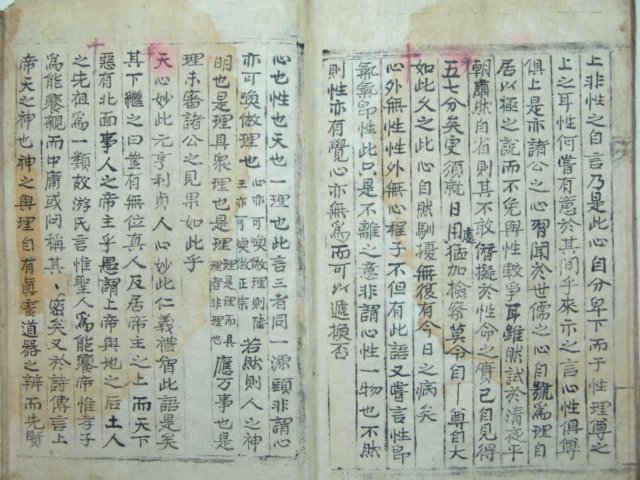 上非性之自言乃是此心自分卑下而于性理尊之
上之耳性何嘗有意於其間乎來亦之言心性俱傳
俱上是亦諸公之心習聞於世儒之心自號爲理自
居以極之說而不免與性較爭耳雖然試於清夜平
朝肅然自省則其不敢儕擬於性命之實已自見得
五七分矣更須就日用處猛加檢察莫令自一尊自大
如此久之此心自然馴擾無復有今日之病矣
心外無性性外無心程子不但有此語又嘗言性卽
氣氣卽性此只是不離之意非謂心性一物也不然
則性亦有覺心亦無爲而可以遞換否
心也性也天也一理也此言三者同一源頭非謂心
亦可喚做理也心亦可喚做理則陸王亦可喚做正宗若然則人之神
明也是理具衆理也是理理是理而具理者非理也應万事也是
理未審諸公之見果如此乎
天心妙此元亨利貞人心妙此仁義禮智此語是矣
其下繼之曰豈有無位真人反居帝主之上而天下
惡有北面事人之帝主乎愚謂上帝與地之后土人
之先祖爲一類故游氏言惟聖人爲能饗帝惟孝子
爲能饗親而中庸或問稱其密矣又於詩傳言上
帝天之神也神之與理自有眞妄道器之辨而先賢